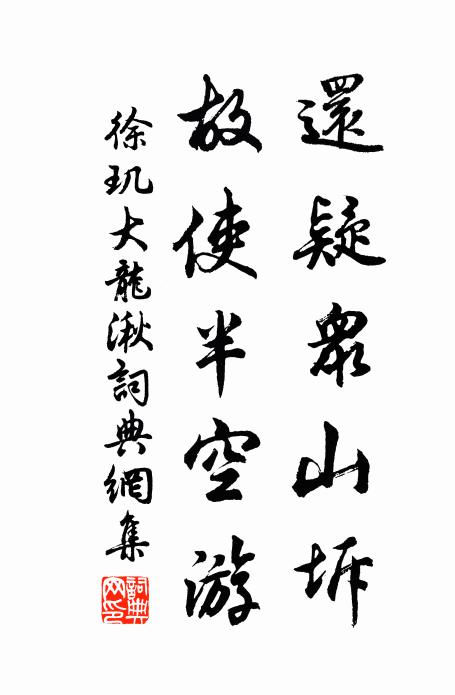 還疑眾山坼
故使半空游
徐玑大龍湫詞典網集
詞典网印